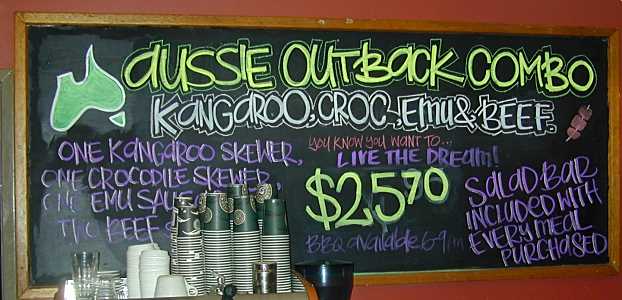 aUSSIE OUTBaCK COMBO
KaNGaROO, CROC, EMU & BEEF.
ONE KANGAROO SKEWER,
ONE CROCODILE SKEWER,
ONE EMU
BEEF
YOU KNOW YOU WANT TO...
LIVE THE DREAM!
$25.70
BBQ available 6-9pm
SALAD BAR
INCLUDED WITH
EVERY MEAL
PURCHASED